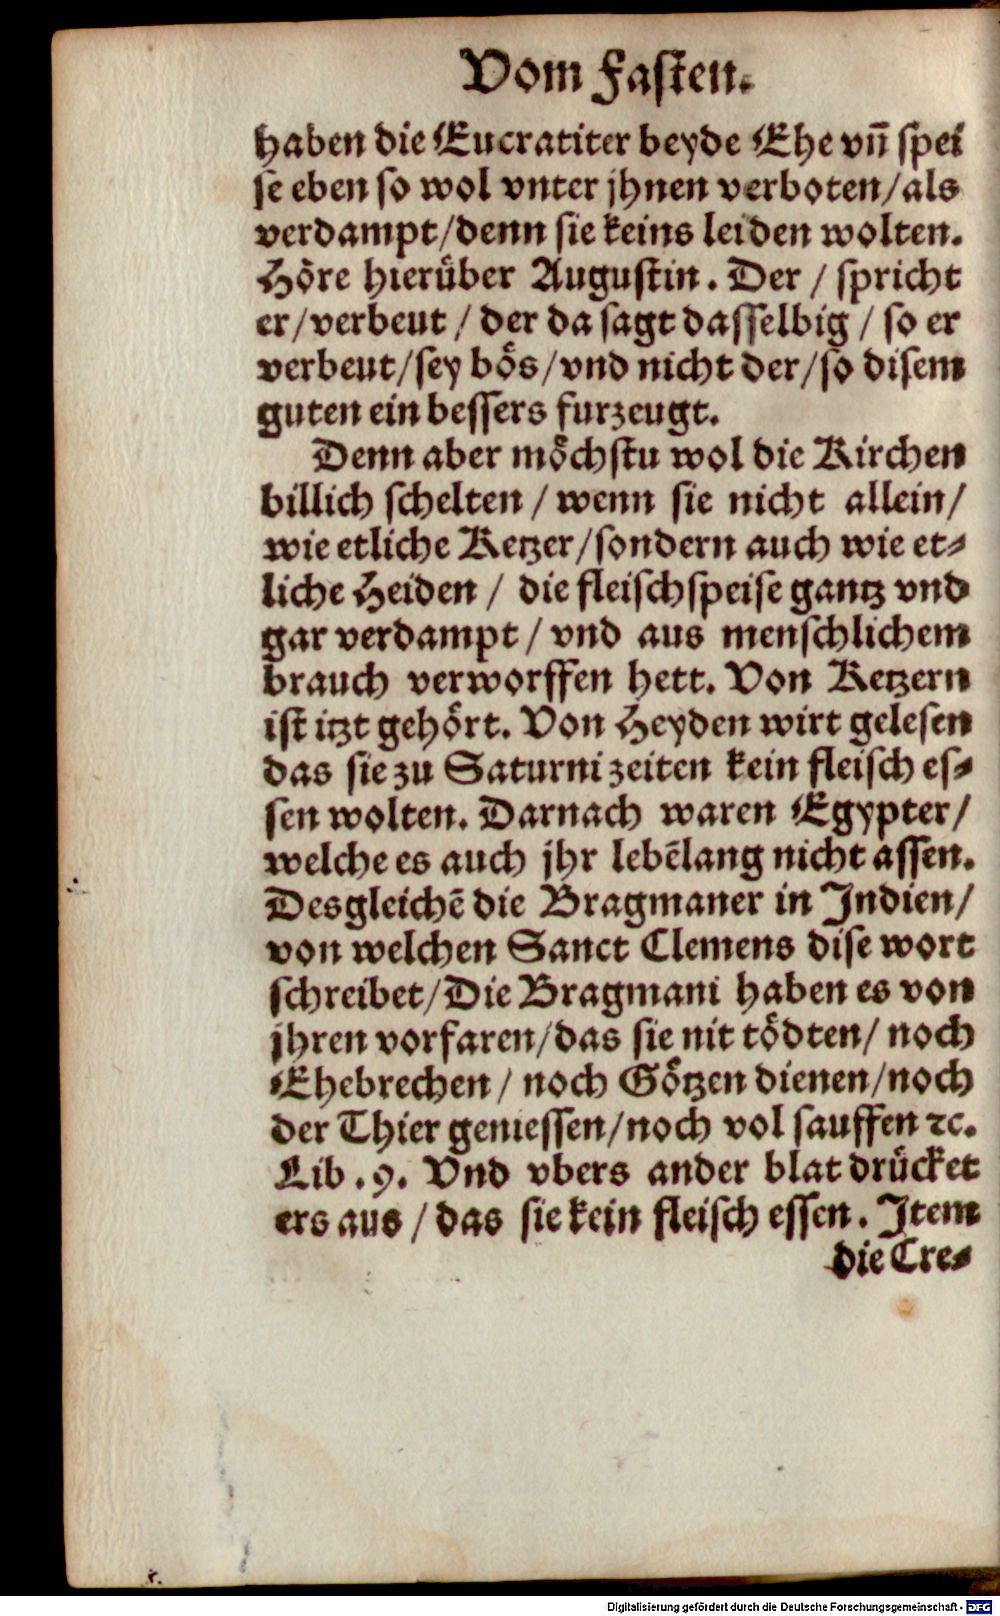 Vom Fasten.
haben die Eucratiter beyde Ehe vn̄ spei
se eben so wol vnter jhnen verboten/als
verdampt/denn sie keins leiden wolten.
Höre hierüber Augustin. Der / spricht
er/verbeut / der da sagt dasselbig / so er
verbeut/sey bös/vnd nicht der/so disem
guten ein bessers furzeugt.
Denn aber möchstu wol die Kirchen
billich schelten / wenn sie nicht allein/
wie etliche Ketzer/sondern auch wie et-
liche Heiden / die fleischspeise gantz vnd
gar verdampt / vnd aus menschlichem
brauch verworffen hett. Von Ketzern
ist itzt gehört. Von Heyden wirt gelesen
das sie zu Saturni zeiten kein fleisch es-
sen wolten. Darnach waren Egypter/
welche es auch jhr lebēlang nicht assen.
Desgleichē die Bragmaner in Indien/
von welchen Sanct Clemens dise wort
schreibet/Die Bragmani haben es von
jhren vorfaren/das sie nit tödten/ noch
Ehebrechen / noch Götzen dienen/noch
der Thier geniessen/noch vol sauffen ⁊c.
Lib. 9. Vnd vbers ander blat drücket
ers aus / das sie kein fleisch essen. Item
die Cre-
Digitalisierung gefördert durch die Deutsche Forschungsgemeinschaft - DFG